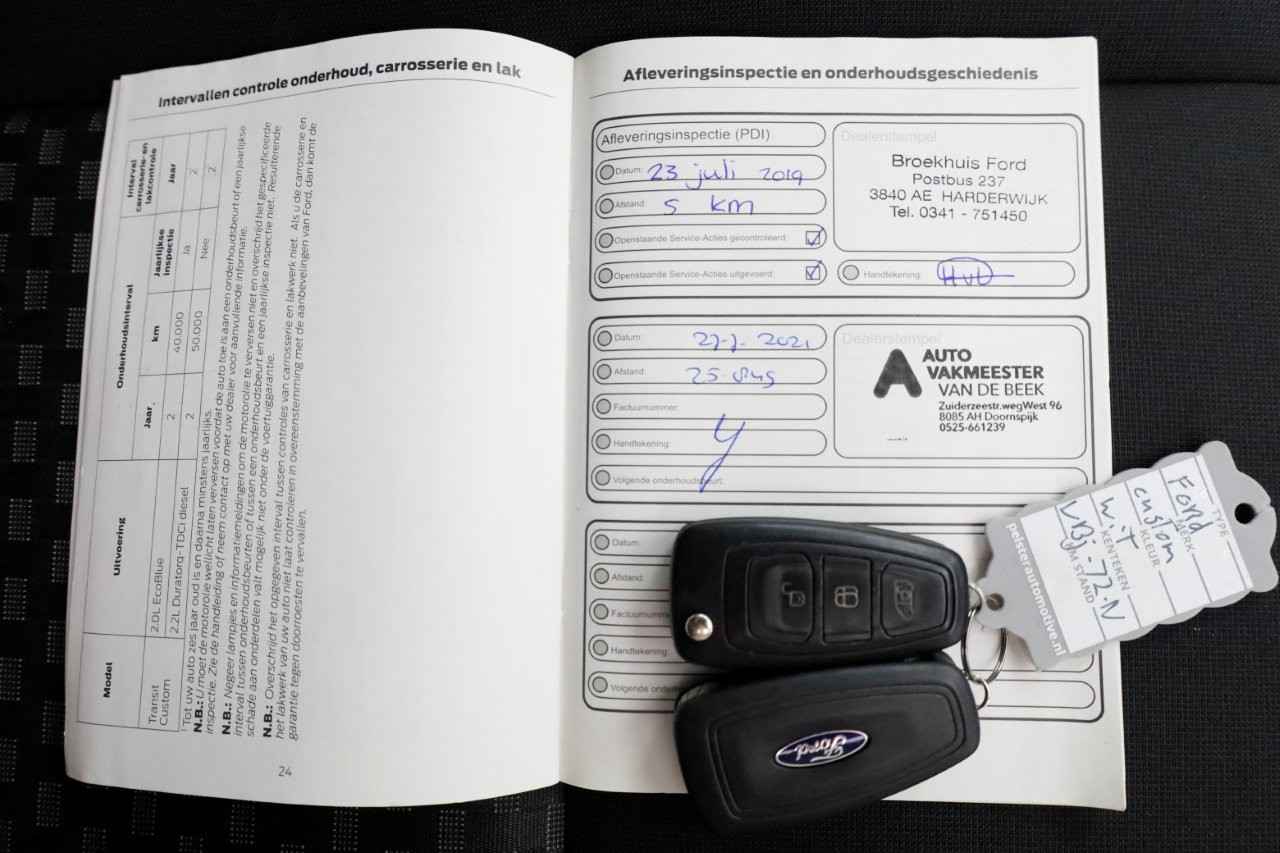 Intervallen controle onderhoud, carrosserie en lak
Model
Uitvoering
Onderhoudsinterval
Interval carrosserie- en lakcontrole
Jaar
km
Jaarlijkse inspectie
Jaar
Transit Custom
2.0L EcoBlue
2
40.000
Ja
2
2.2L Duratorq-TDCi diesel
2
50.000
Nee
2
Tot uw auto zes jaar oud is en daarna minstens jaarlijks.
N.B.: U moet de motorolie wellicht laten verversen voordat de auto toe is aan een onderhoudsbeurt of een jaarlijkse
inspectie. Zie de handleiding of neem contact op met uw dealer voor aanvullende informatie.
N.B.: Negeer lampjes en informatiemeldingen om de motorolie te verversen niet en overschrijd het gespecificeerde
interval tussen onderhoudsbeurten of tussen een onderhoudsbeurt en een jaarlijkse inspectie niet. Resulterende
schade aan onderdelen valt mogelijk niet onder de voertuiggarantie.
N.B.: Overschrijd het opgegeven interval tussen controles van carrosserie en lakwerk niet. Als u de carrosserie en
het lakwerk van uw auto niet laat controleren in overeenstemming met de aanbevelingen van Ford, dan komt de
garantie tegen doorroesten te vervallen.
24
Afleveringsinspectie en onderhoudsgeschiedenis
Afleveringsinspectie (PDI)
Datum: 23 juli 2019
Afstand: 5 km
Openstaande Service-Acties gecontroleerd:
Openstaande Service-Acties uitgevoerd:
Dealerstempel
Broekhuis Ford
Postbus 237
3840 AE HARDERWIJK
Tel. 0341 - 751450
Handtekening:
Datum:
Afstand:
Factuurnummer:
Handtekening:
Volgende onderhoudsbeurt:
Dealerstempel
AUTO
VAKMEESTER
VAN DE BEEK
Zuiderzeestr.wegWest 96
8085 AH Doornspijk
0525-661239
Datum:
Afstand:
Factuurnumme
Handtekening:
Volgende onderh
Ford
TYPE
MERK
Ford
KLEUR
custom
KENTEKEN
wit
KM STAND
VBJ-72-N
pelsterautomotive.nl